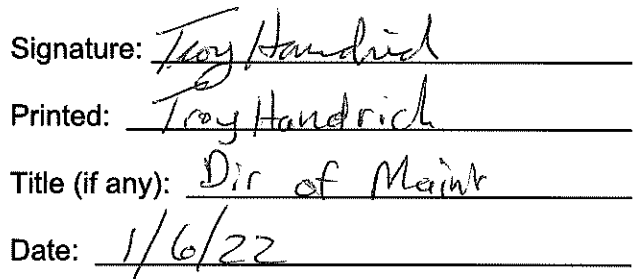 Signature: Troy Handrich
Printed: Troy Handrich
Title (if any): Dir of Maint
Date: 1/6/22